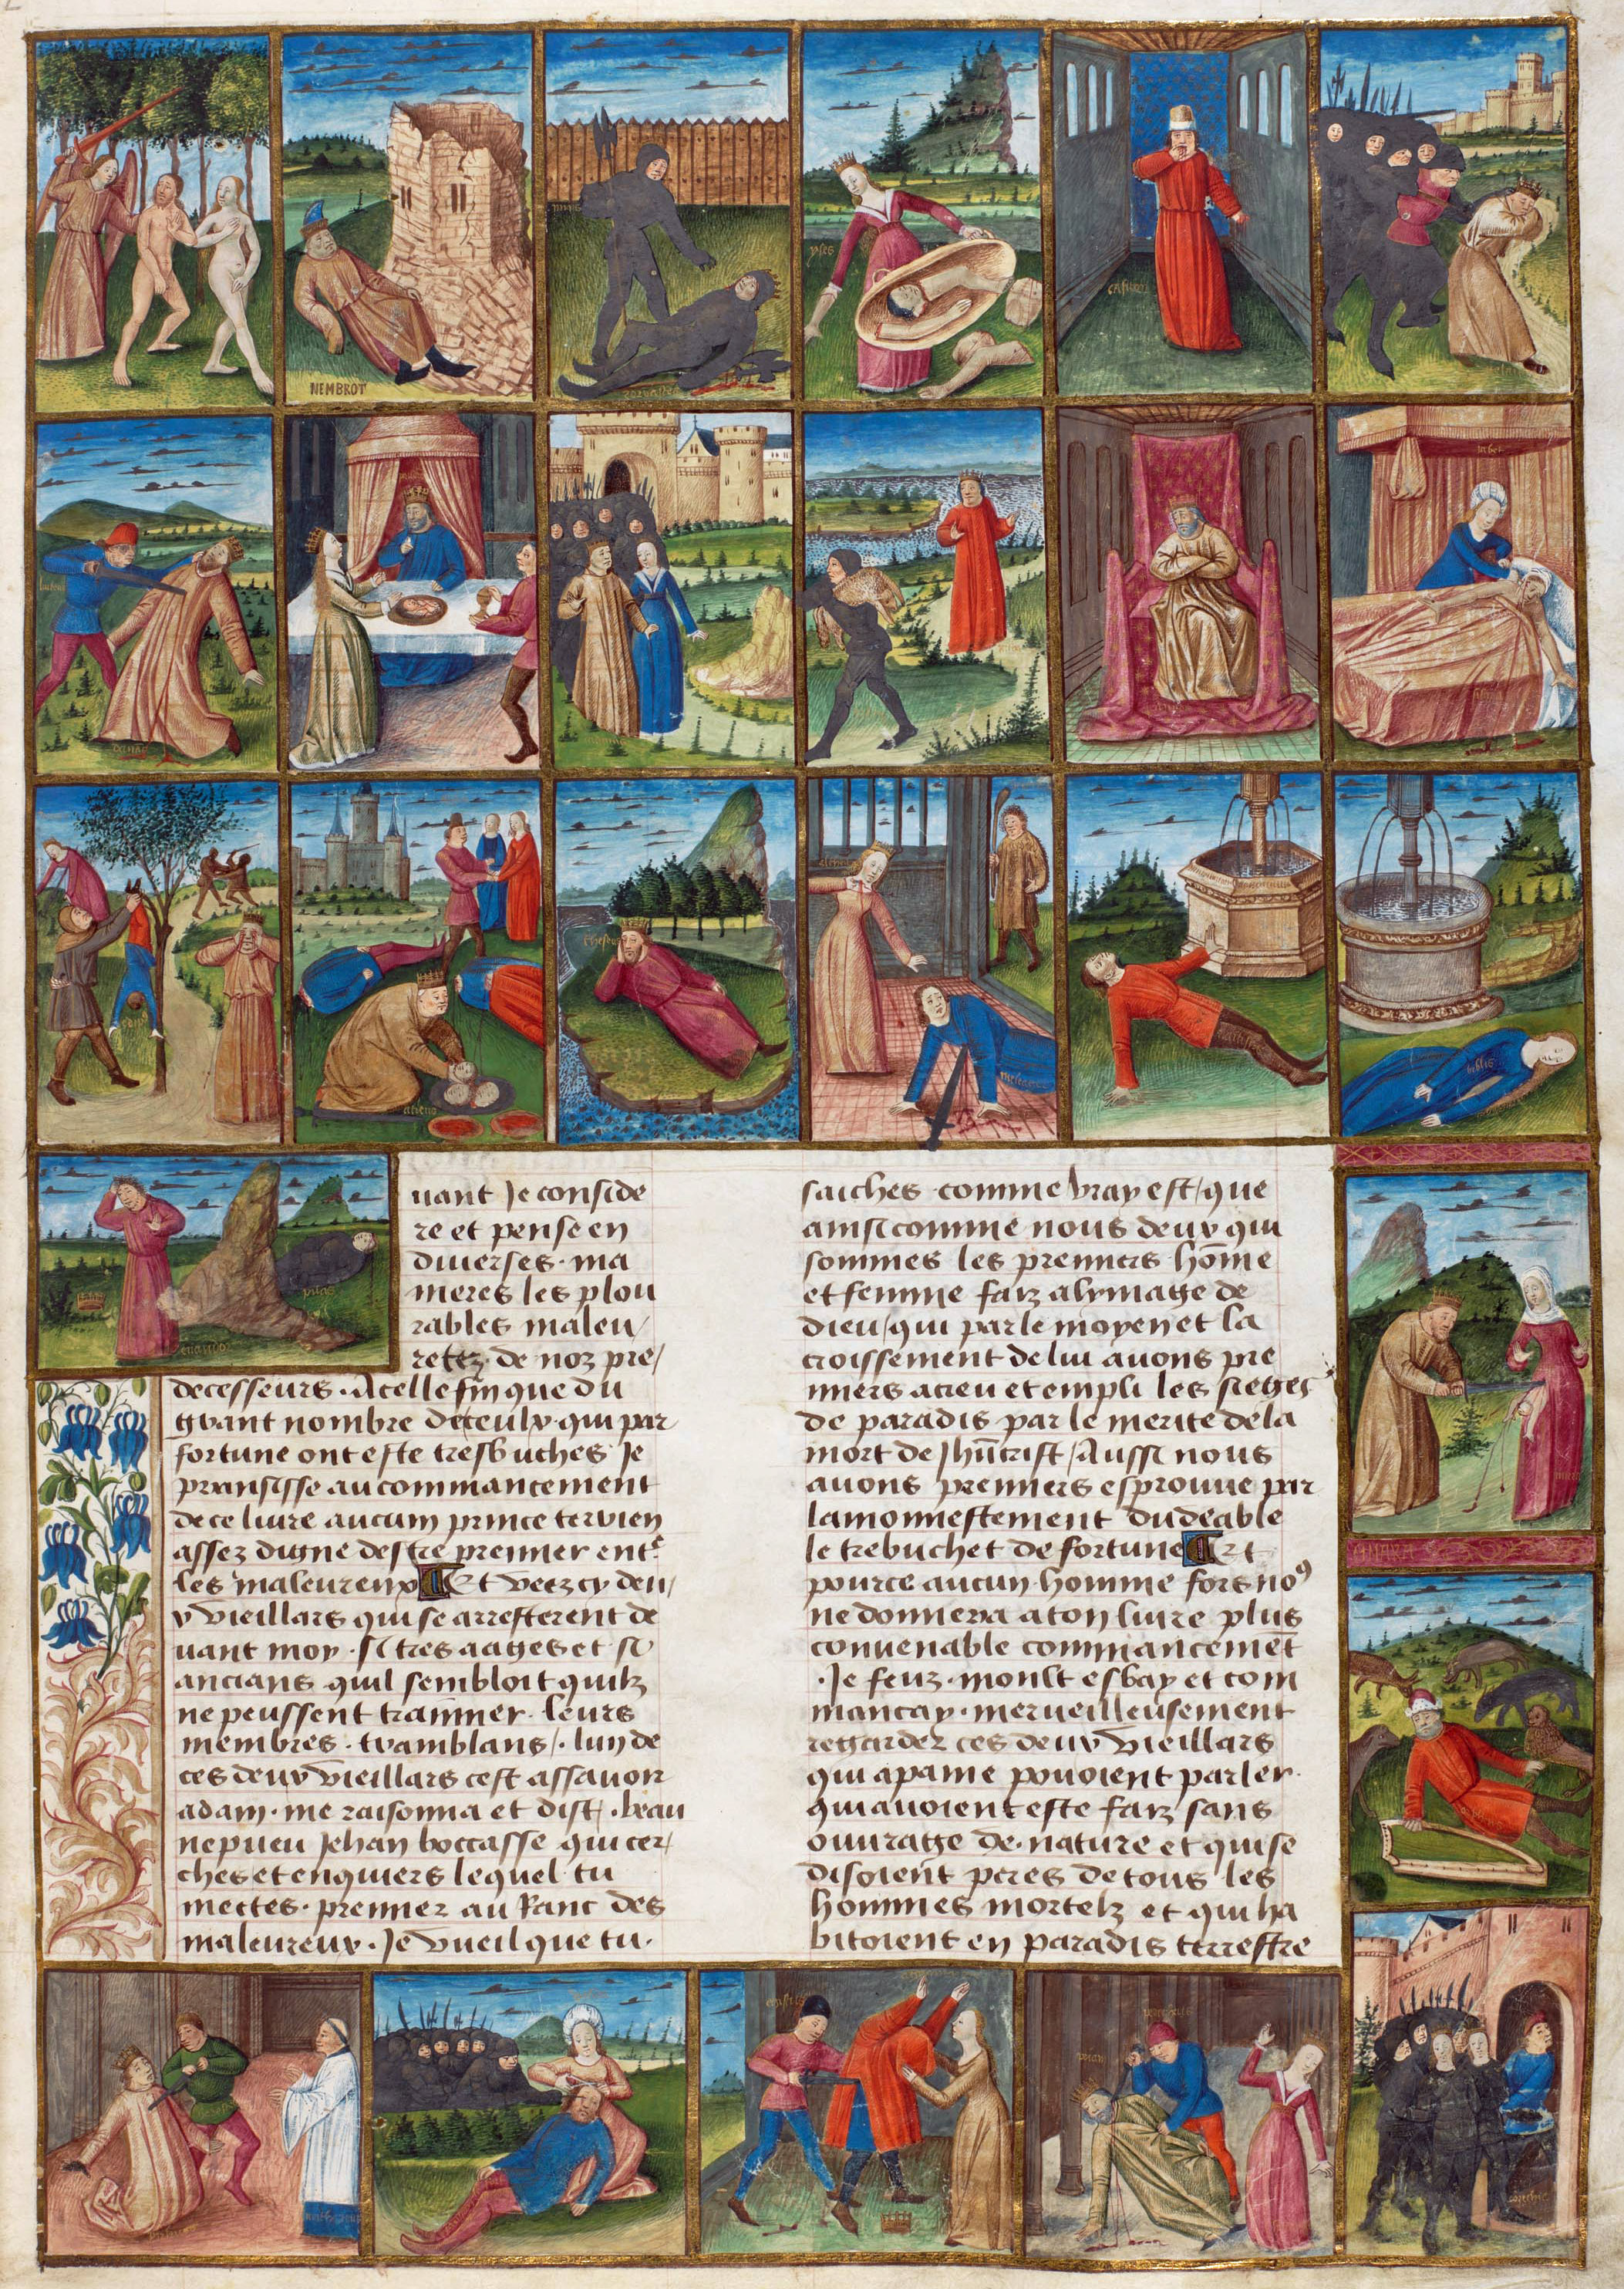 NEMBROT
yses
theseus
biblis
uant Je conside
re et pense en
diuerses· ma
nieres les plou
rables maleu/
retez· de noz pre/
decesseurs· Acelle fin que du
grant nombre deceulx· qui par
fortune ont este tresbuches· Je
pransisse au commancement
de ce liure aucum prince terrien
assez digne destre premier ent
les maleureux Et veez cy deu/
x vieillars qui se arresterent de
uant moy· si tres aages et si
ancians· quil sembloit quilz
ne peussent trainner· leurs
membres· tramblans/· lun de
ces deux vieillars cest assauoir
adam· me raisonna et dist/· beau
nepueu Jehan boccasse qui cer/
ches et enquiers lequel tu
mectes· premier au Ranc des
maleureux· Je vueil que tu·
saiches· comme vray est/ que
ainsi comme nous deux qui
sommes les premiers hōme
et femme faiz alymage de
dieu/ qui par le moyen et la
croissement de lui auons pre
miers acreu et empli les sieges
de paradis par le merite de la
mort de Jhūcrist/ Aussi nous
auons premiers esprouue par
lamonnestement du deable
le trebuchet de fortune Et
pource aucun· homme fors no⁹
ne donnera a ton liure plus
conuenable commancemēt
·Je feuz· moult esbay et com
mancay· merueilleusement
regarder ces deux vieillars
qui apaine pouoient parler·
qui auoient este faiz sans
ouurage de· nature et qui se
disoient peres de tous les
hommes mortelz et qui ha
bitoient en paradis terrestre